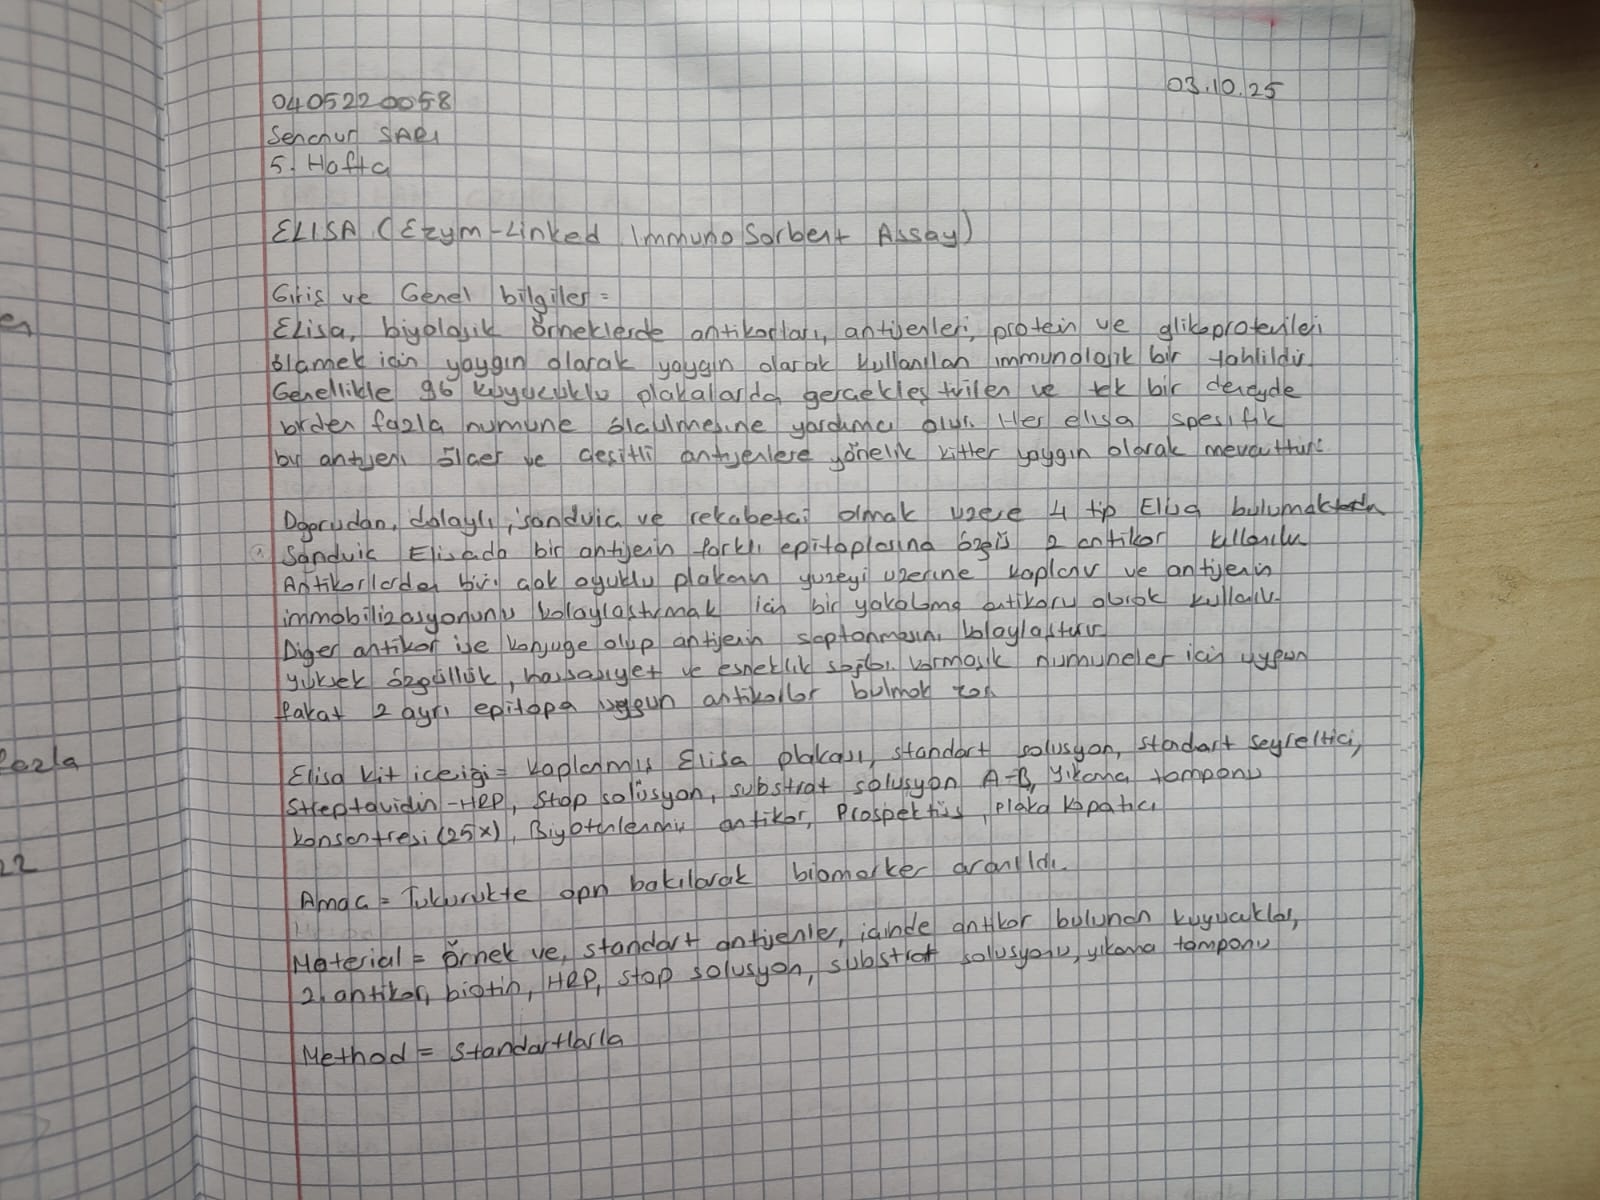 03.10.25
0405220058
Sencnur SARI
5. Hafta
ELISA (Ezym-Linked Immuno Sorbent Assay)
Giris ve Genel bilgiler =
Elisa, biyolojik örneklerde antikorları, antijenleri, protein ve glikoproteinleri
ölçmek için yaygın olarak yaygın olarak kullanılan immunolojik bir tahlildir
Genellikle 96 kuyucuklu plakalarda gerçekleştirilen ve tek bir deneyde
birden fazla numune ölçülmesine yardımcı olur. Her elisa spesifik
bir antijeni ölçer ve çeşitli antijenlere yönelik kitler yaygın olarak mevcuttur.
Doğrudan, dolaylı, sandviç ve rekabetçi olmak üzere 4 tip Elisa bulumaktadır
Sandviç Elisada bir antijenin farklı epitoplarına özgü 2 antikor kullanılır
Antikorlardan biri çok oyuklu plakanın yüzeyi üzerine kaplanır ve antijenin
immobilizasyonunu kolaylaştırmak için bir yakalama antikoru olarak kullanılır.
Diger antikor ise konjuge olup antijenin saptanmasını kolaylaştırır.
yüksek özgüllük, hassasiyet ve esneklik sağlar. karmaşık numuneler için uygun
fakat 2 ayrı epitopa uygun antikorlar bulmak zor
Elisa kit içeriği = kaplanmış Elisa plakası, standart solusyon, standart seyreltici,
Streptavidin-HRP, Stop solüsyon, substrat solusyon A-B, Yıkama tamponu
konsantresi (25x), Biyotinlenmiş antikor, Prospektüs, plaka kapatıcı
Amaç = Tukurukte opn bakılarak biomarker aranıldı.
Material = örnek ve, standart antijenler, içinde antikor bulunan kuyucuklar,
2. antikor, biotin, HRP, stop solusyon, substrat solusyonu, yıkama tamponu
Method = standartlarla
fazla
22